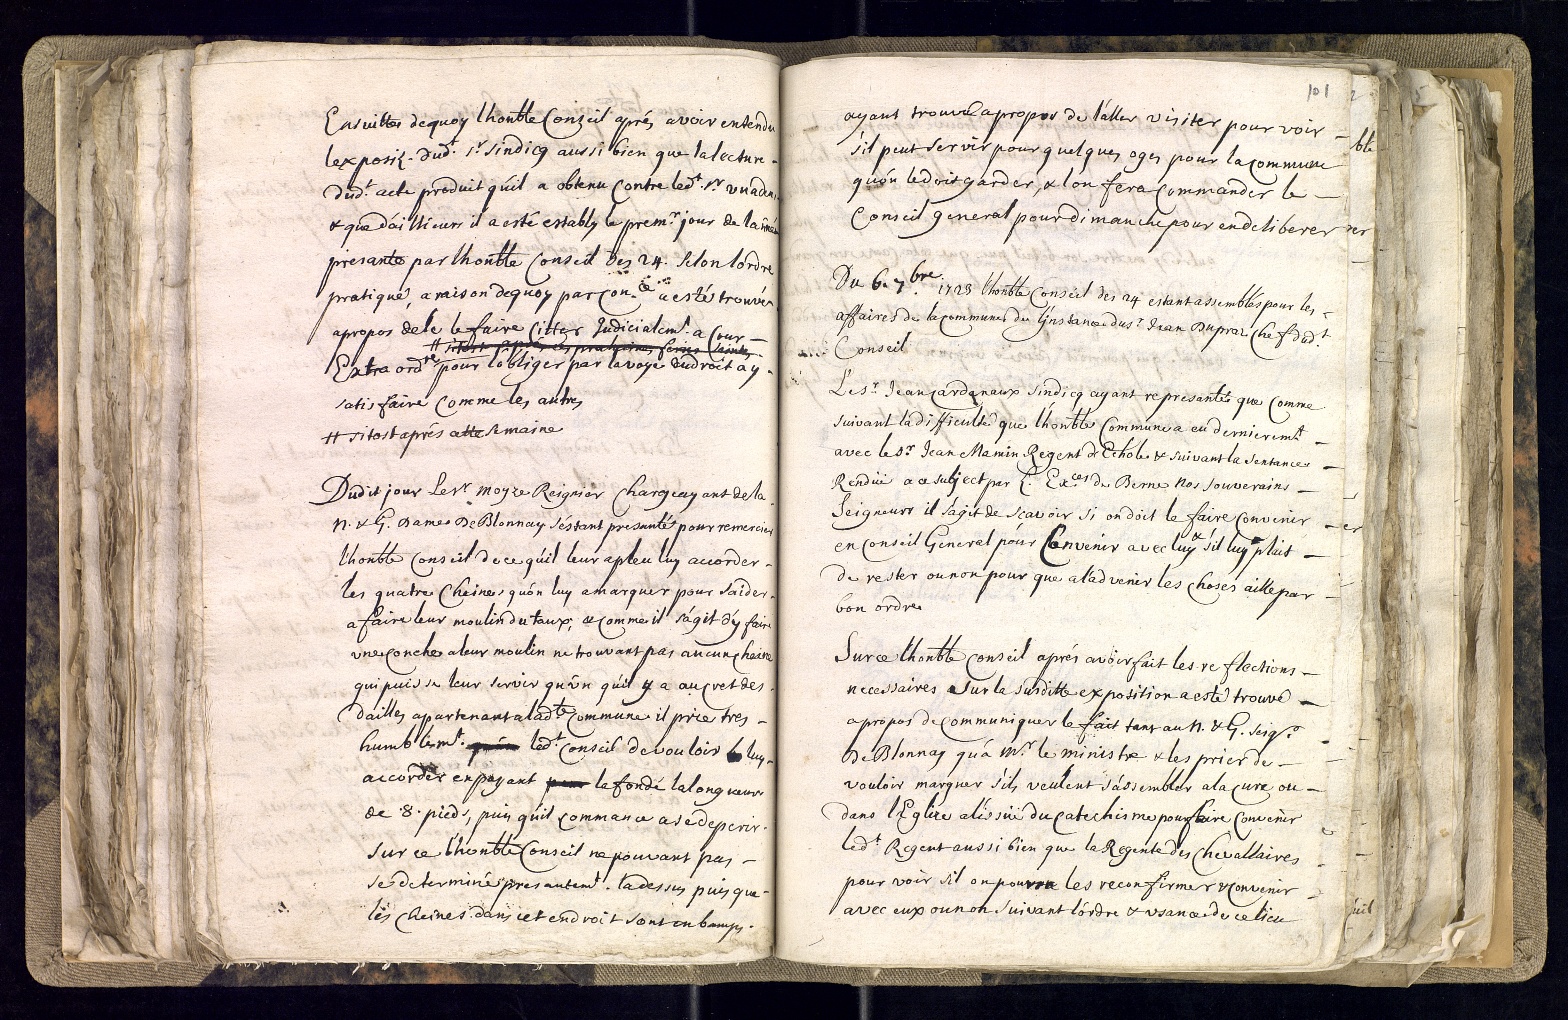 Ensuittes dequoy lhonble Conseil aprés avoir entendu
lexposiz. dud.t s.r sindicq aussi bien que lalecture
dud.t acte produit quil a obtenu contre led.t s.r
& que daillieurs il a esté establÿ le prem.r jour de la
presante par lhonble Conseil des 24. selon lordre
pratiqué, a raison dequoy par a esté trouvé
apropos dele le faire Citter Judicialem.t a Cour
Extra ord.re pour lobliger par lavoye dudroit a y
satisfaire Comme les autres
# sitost aprés cette semaine
Dudit jour Le sr moyze Reignier Charge ayant de la
N. & G. Dame De Blonnay séstant presenté pour remercier
lhonble Conseil de ce quil leur apleu luy accorder
les quatre Cheines quón luy amarquer pour saider
a faire leur moulin du taux, & comme il ságit dÿ faire
vne Conche aleur moulin ne trouvant pas aucun cheine
qui puisse leur servir qun quil y a au cret des
dailles apartenant a lad.te Commune il prie tres
humblem.t led.t Conseil de vouloir luy
accorder en payant la fonde la longueur
de 8. pieds, puis quil commance a se deperir.
Sur ce lhonble Conseil ne pouvant pas
se determiné presantem.t la dessus puis que
les cheines dans cet endroit sont en bamps.
101
ayant trouvé apropos de láller visiter pour voir
sil peut servir pour quelques oges pour la commune
quón le doit garder, & lon fera Commander le
Conseil general pour dimanche pour en deliberer
Du 6. 7bre 1723 lhonble Conseil des 24 estant assemblés pour les
affaires de la commune de linstance du s.r Jean Dupraz Chef dud.t
Conseil
Le s.r Jean Cardanaux sindicq ayant represanté que comme
suivant la difficulté que lhonble Commune a eu dernierem.t
avec le s.r Jean Mamin Regent dEchóle & suivant la sentance
Rendüe a ce subject par L. Ex.ces de Berne Nos souverains
Seigneurs il ságit de scavoir si on doit le faire Convenir
en Conseil General pour Convenir avec luy & sil luy plait
de rester ou non pour que a ladvenir les choses aille par
bon ordre
Sur ce lhonble Conseil aprés avoir fait les reflections
necessaires sur la susditte exposition a esté trouvé
apropos de communiquer le fait tant au N. & G. Seig.r
De Blonnay quá M.r le ministre & les prier de
vouloir marquer sils veulent sássembler a la cure ou
dans l'Eglise a lissüe du catechisme pour faire Convenir
led.t Regent aussi bien que la Regente des Chevallaires
pour voir sil on pourra les reconfirmer & convenir
avec eux ou non suivant lórdre & usance de ce lieu